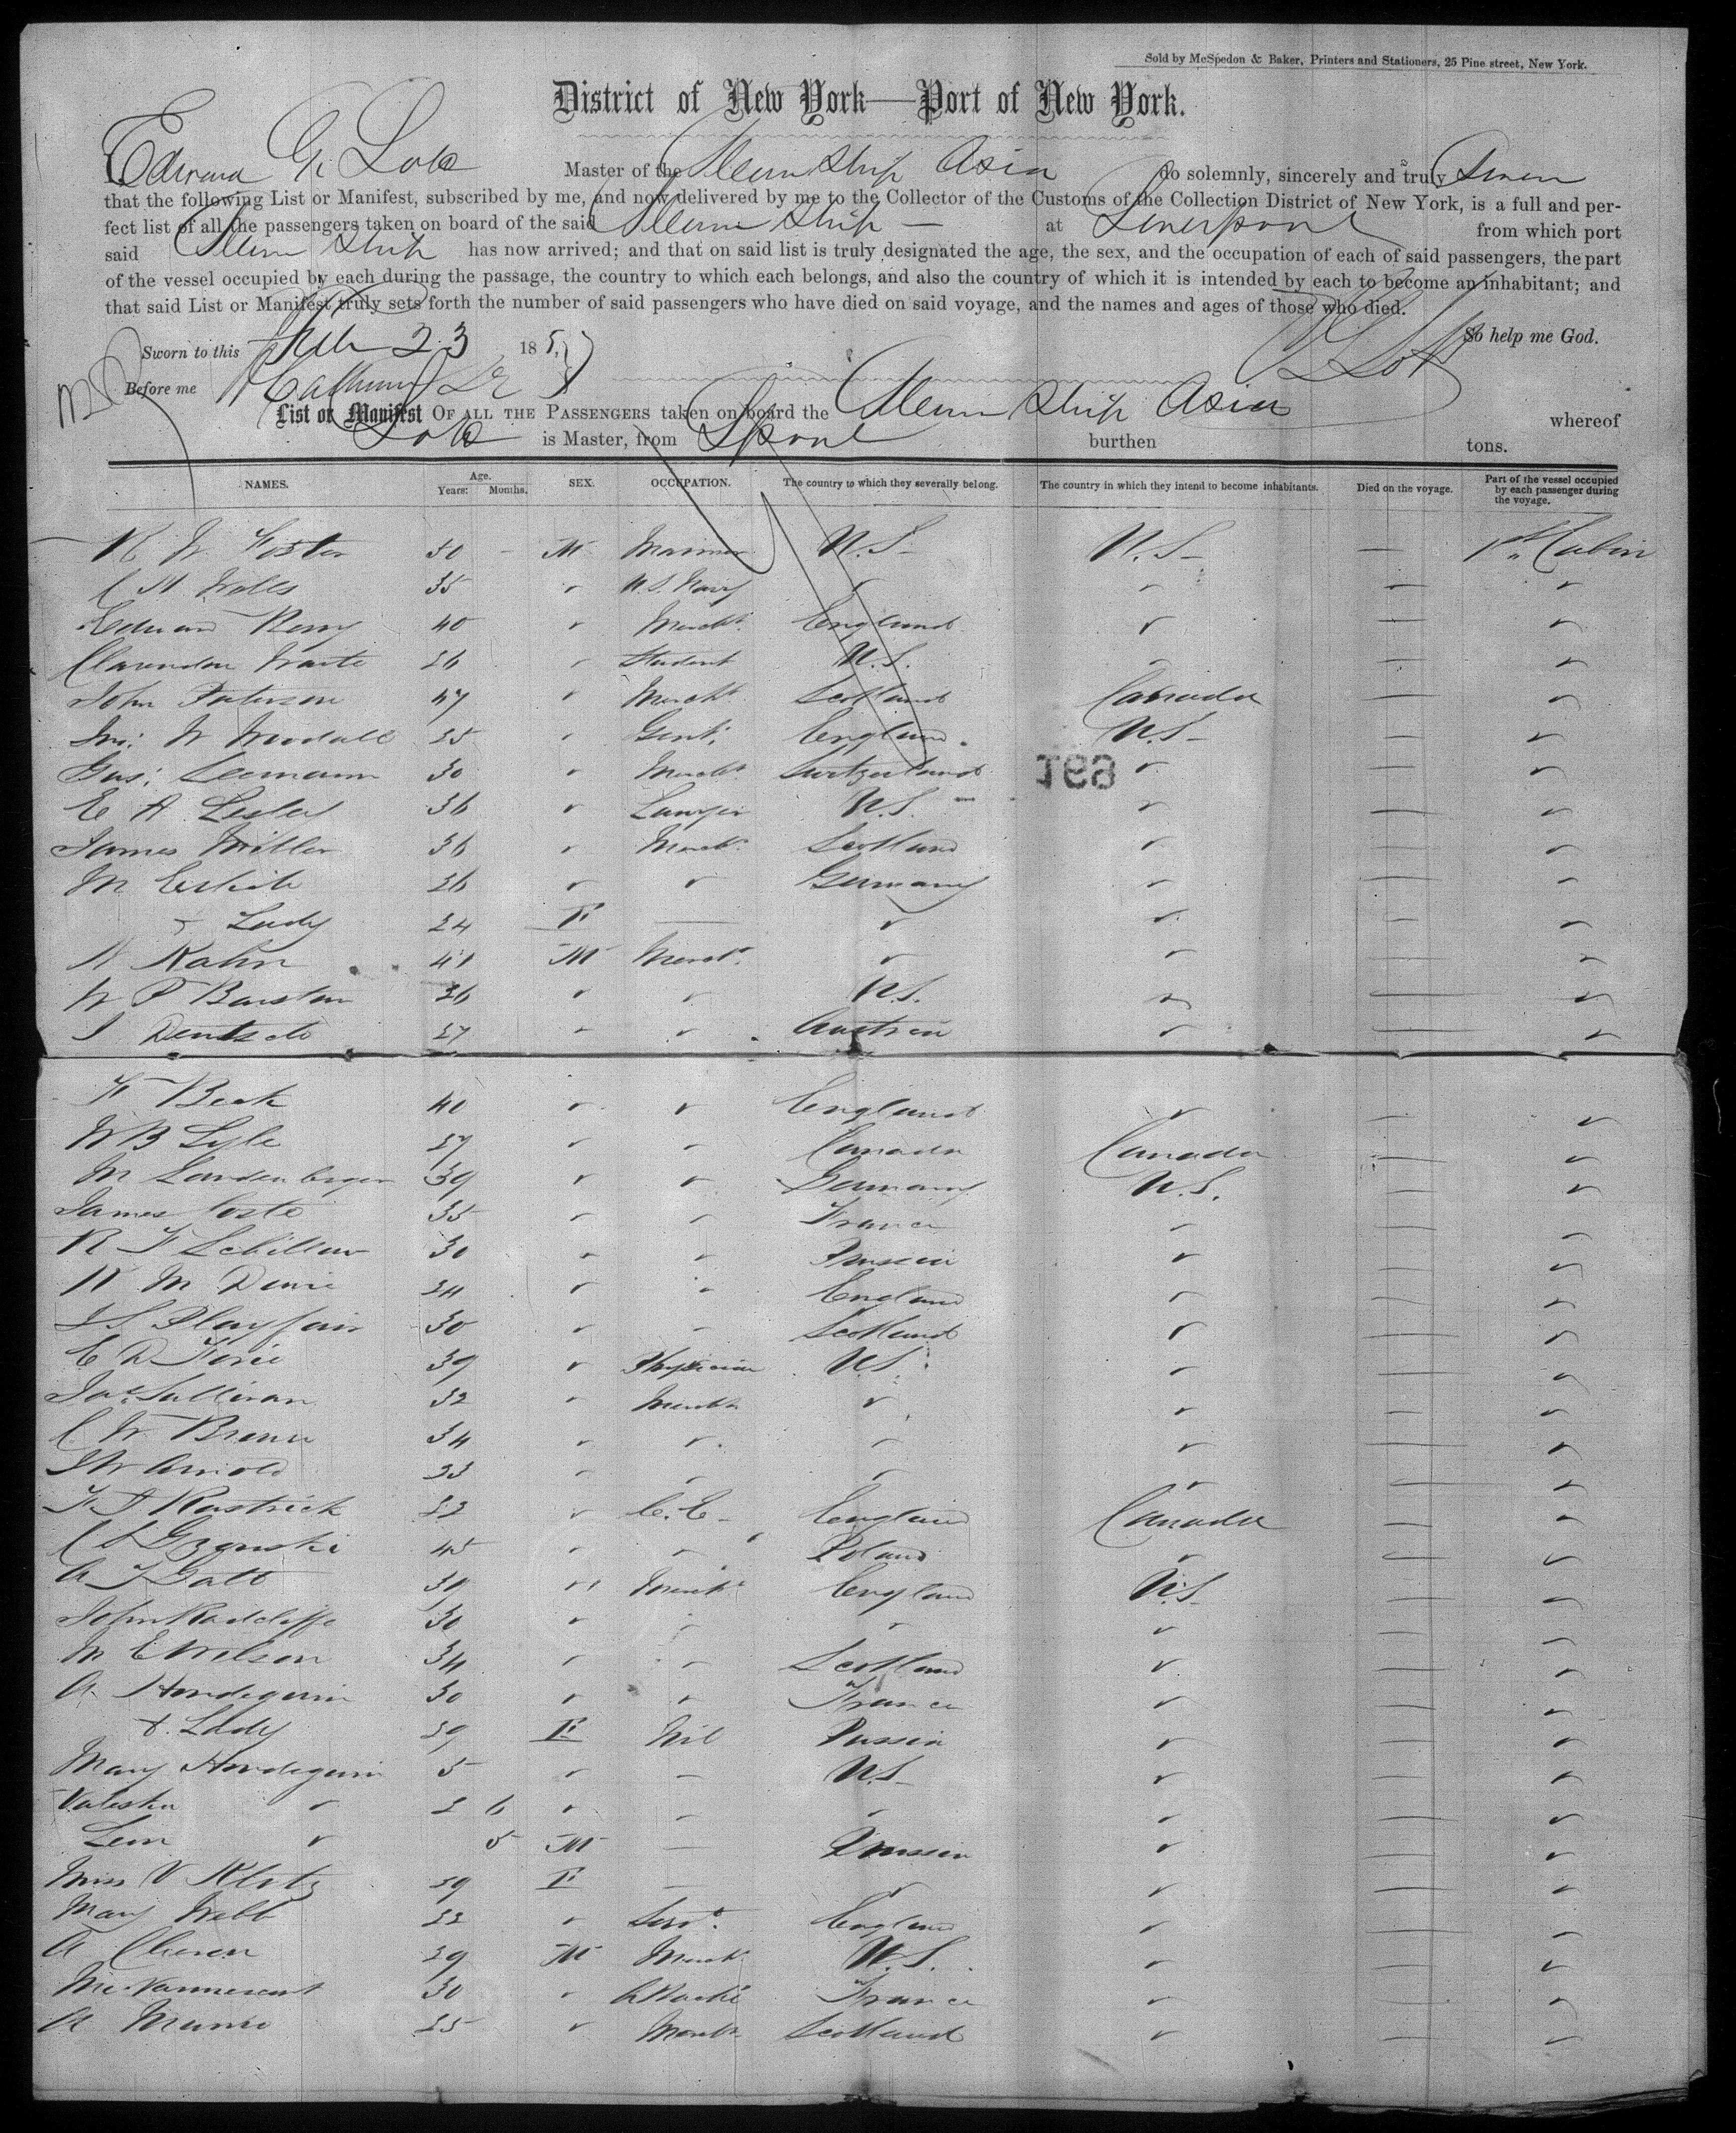 Sold by McSpedon & Baker, Printers and Stationers, 25 Pine street, New York.
District of New York—Port of New York.
I, Edward G. Lott Master of the Steam Ship Asia do solemnly, sincerely and truly Swear
that the following List or Manifest, subscribed by me, and now delivered by me to the Collector of the Customs of the Collection District of New York, is a full and per-
fect list of all the passengers taken on board of the said Steam Ship — at Liverpool from which port
said Steam Ship has now arrived; and that on said list is truly designated the age, the sex, and the occupation of each of said passengers, the part
of the vessel occupied by each during the passage, the country to which each belongs, and also the country of which it is intended by each to become an inhabitant; and
that said List or Manifest truly sets forth the number of said passengers who have died on said voyage, and the names and ages of those who died.
So help me God.
Sworn to this 23 185
Before me
List or Manifest OF ALL THE PASSENGERS taken on board the Steam Ship Asia whereof
Lott is Master, from Lpool burthen tons.
NAMES. Age. Years: Months. SEX. OCCUPATION. The country to which they severally belong. The country in which they intend to become inhabitants. Died on the voyage. Part of the vessel occupied by each passenger during the voyage.
R W Foster 50 - M Mariner U.S- U.S- — 1st Cabin
C H Wells 35 " U.S. Navy " " — "
Edward Perry 40 " Mercht. England " — "
Clarendon Waite 26 " Student U.S. " — "
John Paterson 47 " Mercht. Scotland Canada — "
Jno: W Woodall 25 " Gent. England U.S- — "
Gus: Seemann 30 " Mercht Switzerland " — "
169
E A Lesley 36 " Lawyer U.S. " — "
James Miller 36 " Mercht. Scotland " — "
M 26 " " Germany " — "
" Lady 24 F — " " — "
H Kahn 41 M Mercht. " " — "
W P Barstow 26 " " U.S. " — "
I Deutsch 27 " " Austria " — "
F Beck 40 " " England " — "
W B Lyle 27 " " Canada Canada — "
M Landenberger 39 " " Germany U.S. — "
James Coste 35 " " France " — "
R F Schillow 30 " " Prussia " — "
H M 24 " " England " — "
J S Playfair 30 " " Scotland " — "
E D 39 " Physician U.S. " — "
Jas Sullivan 32 " Mercht " " — "
C W Brown 34 " " " " — "
J W Arnold 33 " " " " — "
F J Rastrick 22 " C.E- England Canada — "
C S Gzowski 45 " " Poland " — "
A T Galt 39 " Mercht England U.S — "
John Radcliffe 30 " " " " — "
M E Wilson 34 " " Scotland " — "
A Hondequin 30 " " France " — "
& Lady 29 F Nil Prussia " — "
Mary Hondequin 5 " — U.S- " — "
Valeska " 2 6 " — " " — "
Leon " 5 M — Prussia " — "
Miss V Klotz 19 F — " " — "
Mary Webb 22 " Servt. England " — "
A 29 M Mercht U.S. " — "
30 " Attaché France " — "
A Munro 25 " Mercht Scotland " — "